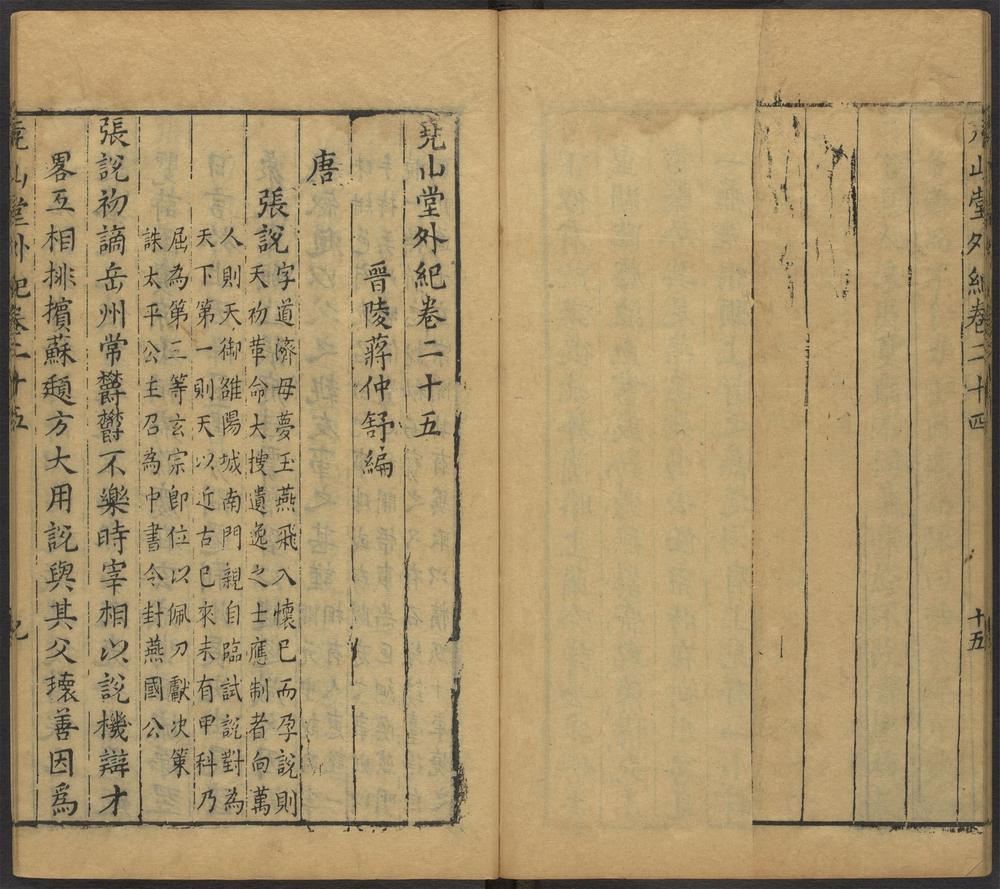 堯山堂外紀卷二十四
十五
堯山堂外紀卷二十五
晉陵蔣仲舒編
唐
張說
字道濟母夢玉燕飛入懷巳而孕說則
天初革命大搜遺逸之士應制者向萬
人則天御雒陽城南門親自臨試說對為
天下第一則天以近古巳來未有甲科乃
屈為第三等玄宗即位以佩刀獻决策
誅太平公主召為中書令封燕國公
張說初謫岳州常欝欝不樂時宰相以說機辯才
畧互相排擯蘇頲方大用說與其父瓌善因為
堯山堂外紀卷二十五